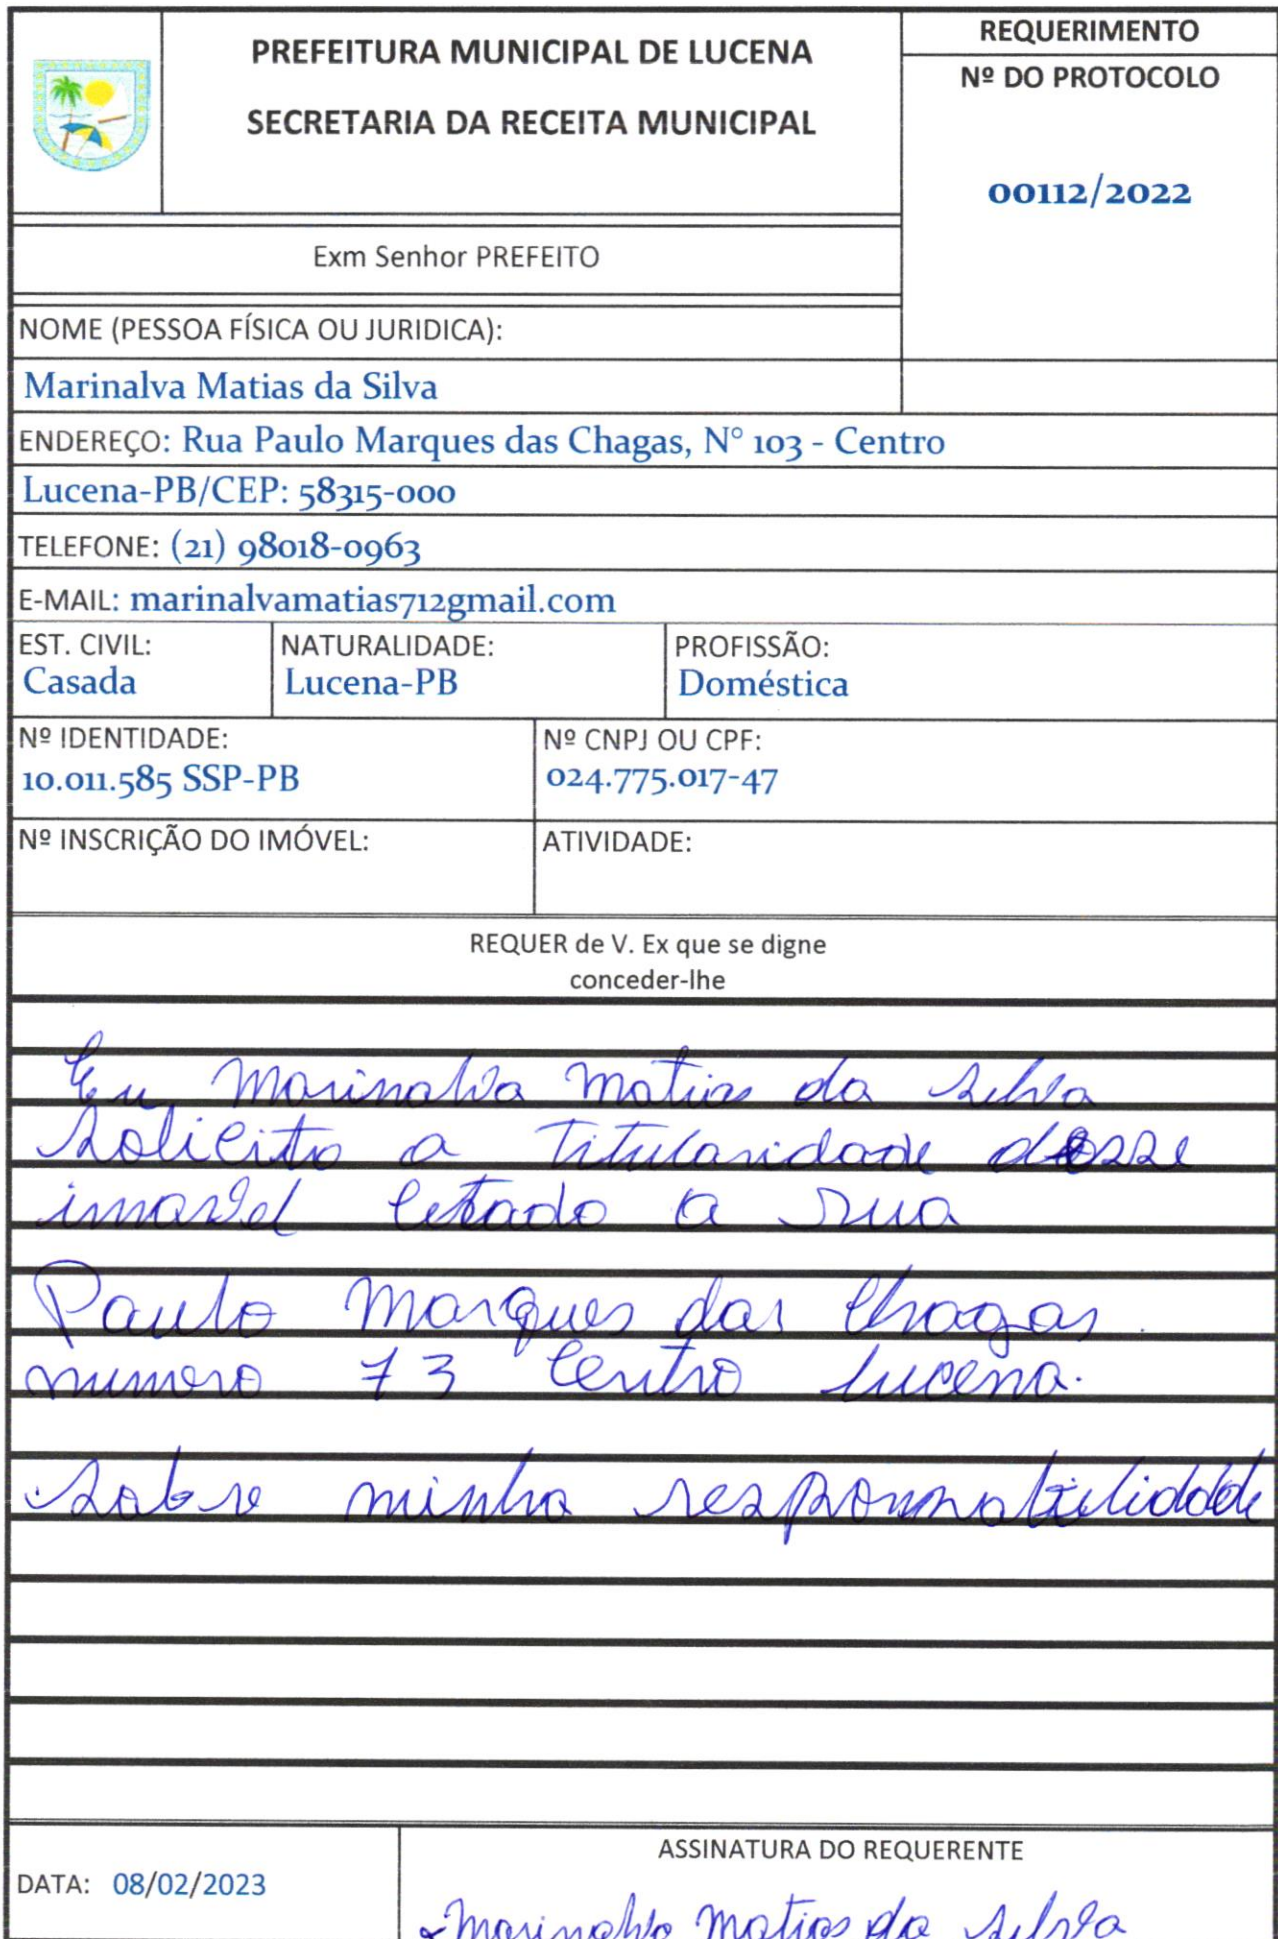 PREFEITURA MUNICIPAL DE LUCENA
SECRETARIA DA RECEITA MUNICIPAL
REQUERIMENTO
Nº DO PROTOCOLO
00112/2022
Exm Senhor PREFEITO
NOME (PESSOA FÍSICA OU JURIDICA):
Marinalva Matias da Silva
ENDEREÇO: Rua Paulo Marques das Chagas, N° 103 - Centro
Lucena-PB/CEP: 58315-000
TELEFONE: (21) 98018-0963
E-MAIL: marinalvamatias712gmail.com
EST. CIVIL:
Casada
NATURALIDADE:
Lucena-PB
PROFISSÃO:
Doméstica
Nº IDENTIDADE:
10.011.585 SSP-PB
Nº CNPJ OU CPF:
024.775.017-47
Nº INSCRIÇÃO DO IMÓVEL:
ATIVIDADE:
REQUER de V. Ex que se digne
conceder-lhe
Eu Marinalva Matias da Silva
Solicito a Titularidade desse
imovel a rua
Paulo Marques das Chagas.
numero 73 Centro Lucena.
Sobre minha
DATA: 08/02/2023
ASSINATURA DO REQUERENTE
Marinalva Matias da Silva